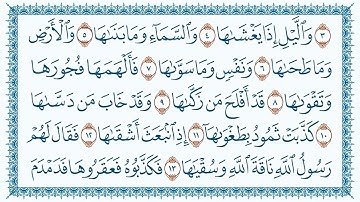 ٣ وَالَّيْلِ إِذَا يَغْشَىٰهَا ٤ وَالسَّمَآءِ وَمَا بَنَىٰهَا ٥ وَالْأَرْضِ
وَمَا طَحَىٰهَا ٦ وَنَفْسٍ وَمَا سَوَّىٰهَا ٧ فَأَلْهَمَهَا فُجُورَهَا
وَتَقْوَىٰهَا ٨ قَدْ أَفْلَحَ مَن زَكَّىٰهَا ٩ وَقَدْ خَابَ مَن دَسَّىٰهَا
١٠ كَذَّبَتْ ثَمُودُ بِطَغْوَىٰهَا ١١ إِذِ انۢبَعَثَ أَشْقَىٰهَا ١٢ فَقَالَ لَهُمْ
رَسُولُ اللَّهِ نَاقَةَ اللَّهِ وَسُقْيَٰهَا ١٣ فَكَذَّبُوهُ فَعَقَرُوهَا فَدَمْدَمَ